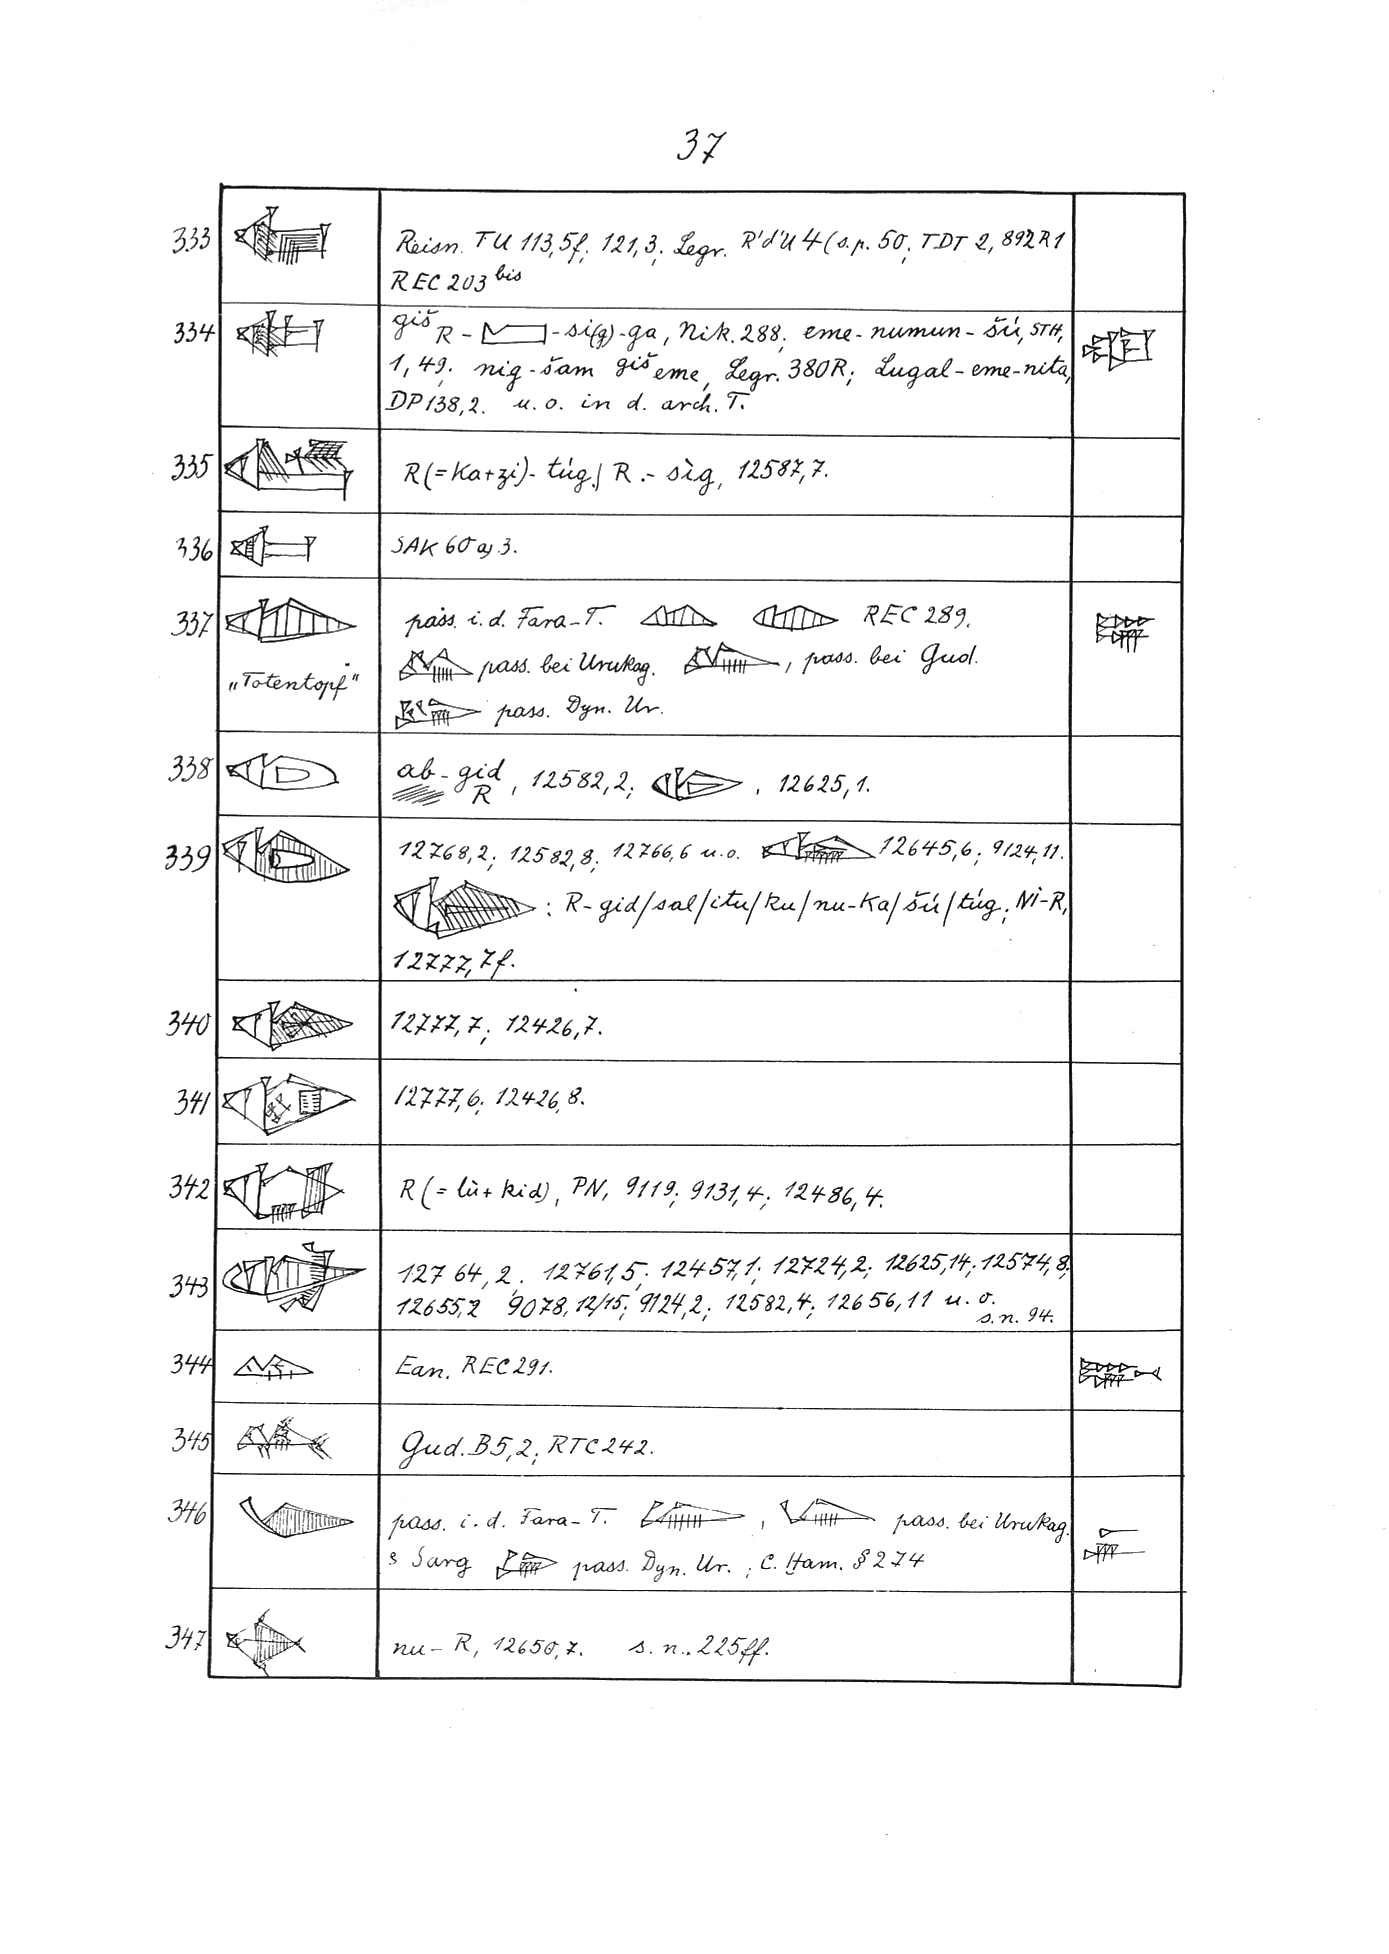 37
333 Reisn. TU 113,5f; 121,3; Legr. R'd'U 4 (s.p. 50; TDT 2, 892 R1
REC 203 bis
334 giš R - -si(g)-ga, Nik. 288; eme-numun-šú, STH,
1, 49; nig-šam giš eme, Legr. 380R; Lugal-eme-nita,
DP 138,2. u. o. in d. arch. T.
335 R (=Ka+zi)-túg / R.-sìg, 12587,7.
336 SAK 60 a) 3.
337 pass. i. d. Fara-T. REC 289.
pass. bei Urukag. , pass. bei Gud.
„Totentopf“
pass. Dyn. Ur.
338 ab-gid R, 12582,2; , 12625,1.
339 12768,2; 12582,8; 12766,6 u.o. 12645,6; 9124,11.
: R-gid/sal/itu/ku/nu-Ka/šú/túg; Ni-R,
12777,7f.
340 12777,7; 12426,7.
341 12777,6; 12426,8.
342 R (= lù + kid), PN, 9119; 9131,4; 12486,4.
343 12764,2; 12761,5; 12457,1; 12724,2; 12625,14; 12574,8;
12655,2 9078,12/15; 9124,2; 12582,4; 12656,11 u. o.
s. n. 94.
344 Ean. REC 291.
345 Gud. B 5,2; RTC 242.
346 pass. i. d. Fara-T. , pass. bei Urukag.
s Sarg pass. Dyn. Ur. ; C. Ham. § 274
347 nu-R, 12650,7. s. n. 225ff.